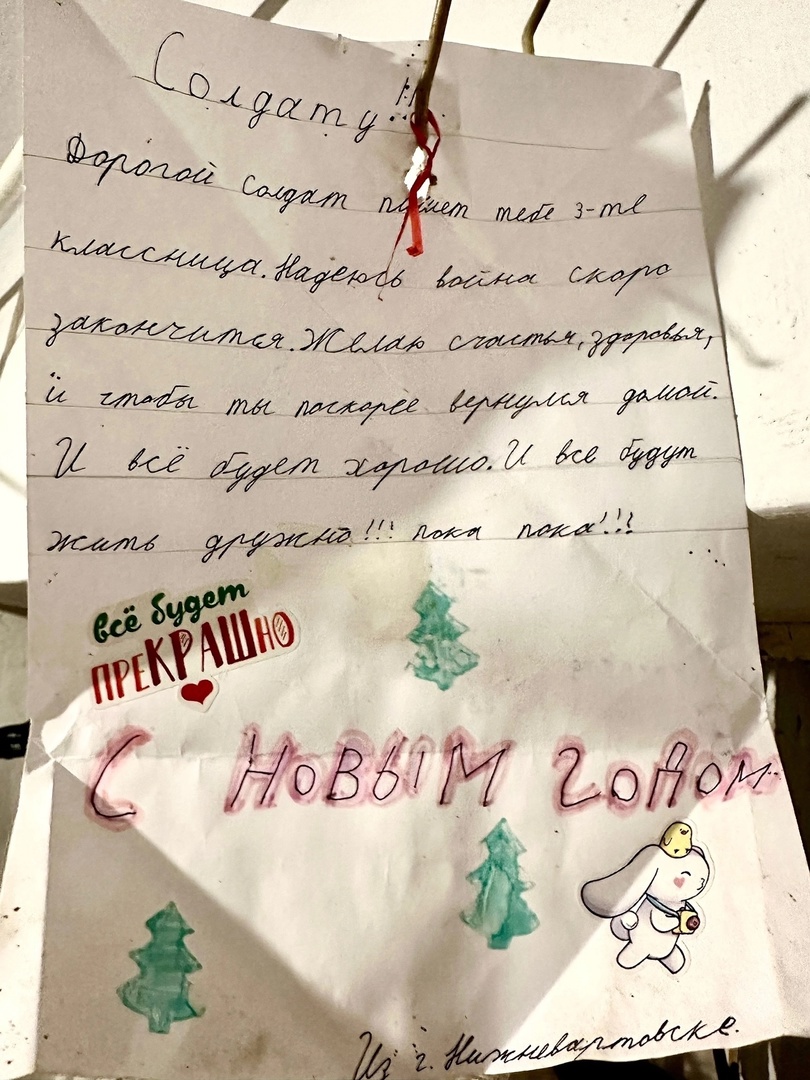 Солдату!!
Дорогой солдат пишет тебе 3-те
классница. Надеюсь война скоро
закончится. Желаю счастья, здоровья,
и чтобы ты поскорее вернулся домой.
И всё будет хорошо. И все будут
жить дружно!!! пока пока!!!
всё будет
ПРЕКРАШНО
С НОВЫМ годом
Из г. Нижневартовске.